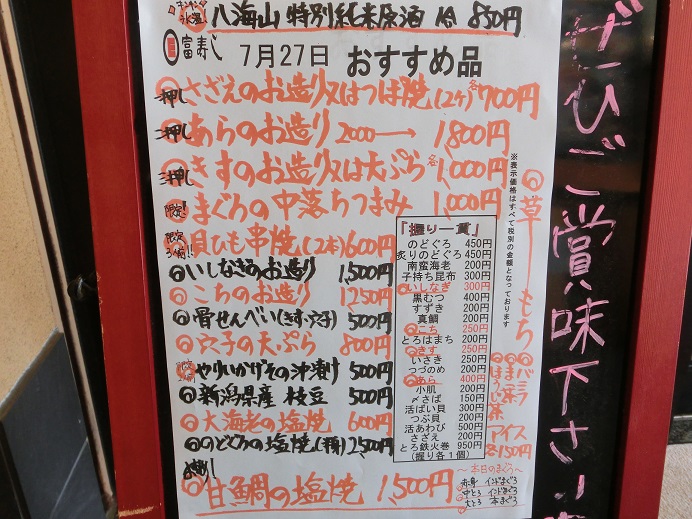 八海山 特別純米原酒 冷 850円
富寿し 7月27日 おすすめ品
一押し さざえのお造り又はつぼ焼(2ケ) 各700円
二押し あらのお造り 2000→1,800円
三押し きすのお造り又は天ぷら 各1,000円
限定! まぐろの中落ちつまみ 1,000円
限定 貝ひも串焼(2本) 600円
いしなぎのお造り 1,500円
こちのお造り 1250円
骨せんべい(きす・穴子) 500円
穴子の天ぷら 800円
やりいかげその沖漬け 500円
新潟県産 枝豆 500円
大海老の塩焼 600円
のどぐろの塩焼(1尾) 2,500円
甘鯛の塩焼 1,500円
『握り一貫』
のどぐろ 450円
炙りのどぐろ 450円
南蛮海老 200円
子持ち昆布 300円
いしなぎ 300円
黒むつ 400円
すずき 200円
真鯛 200円
こち 250円
とろはまち 200円
きす 250円
いさき 250円
つづのめ 200円
あら 400円
小肌 200円
〆さば 150円
活ばい貝 300円
つぶ貝 200円
活あわび 500円
さざえ 200円
とろ鉄火巻 950円
(握り各1個)
※表示価格はすべて税別の金額となっております
草もち
バニラ
まっ茶
ほうじ茶
アイス
各150円
～本日のまぐろ～
赤身 インドまぐろ
中とろ インドまぐろ
大とろ 本まぐろ
ぜひご賞味下さい